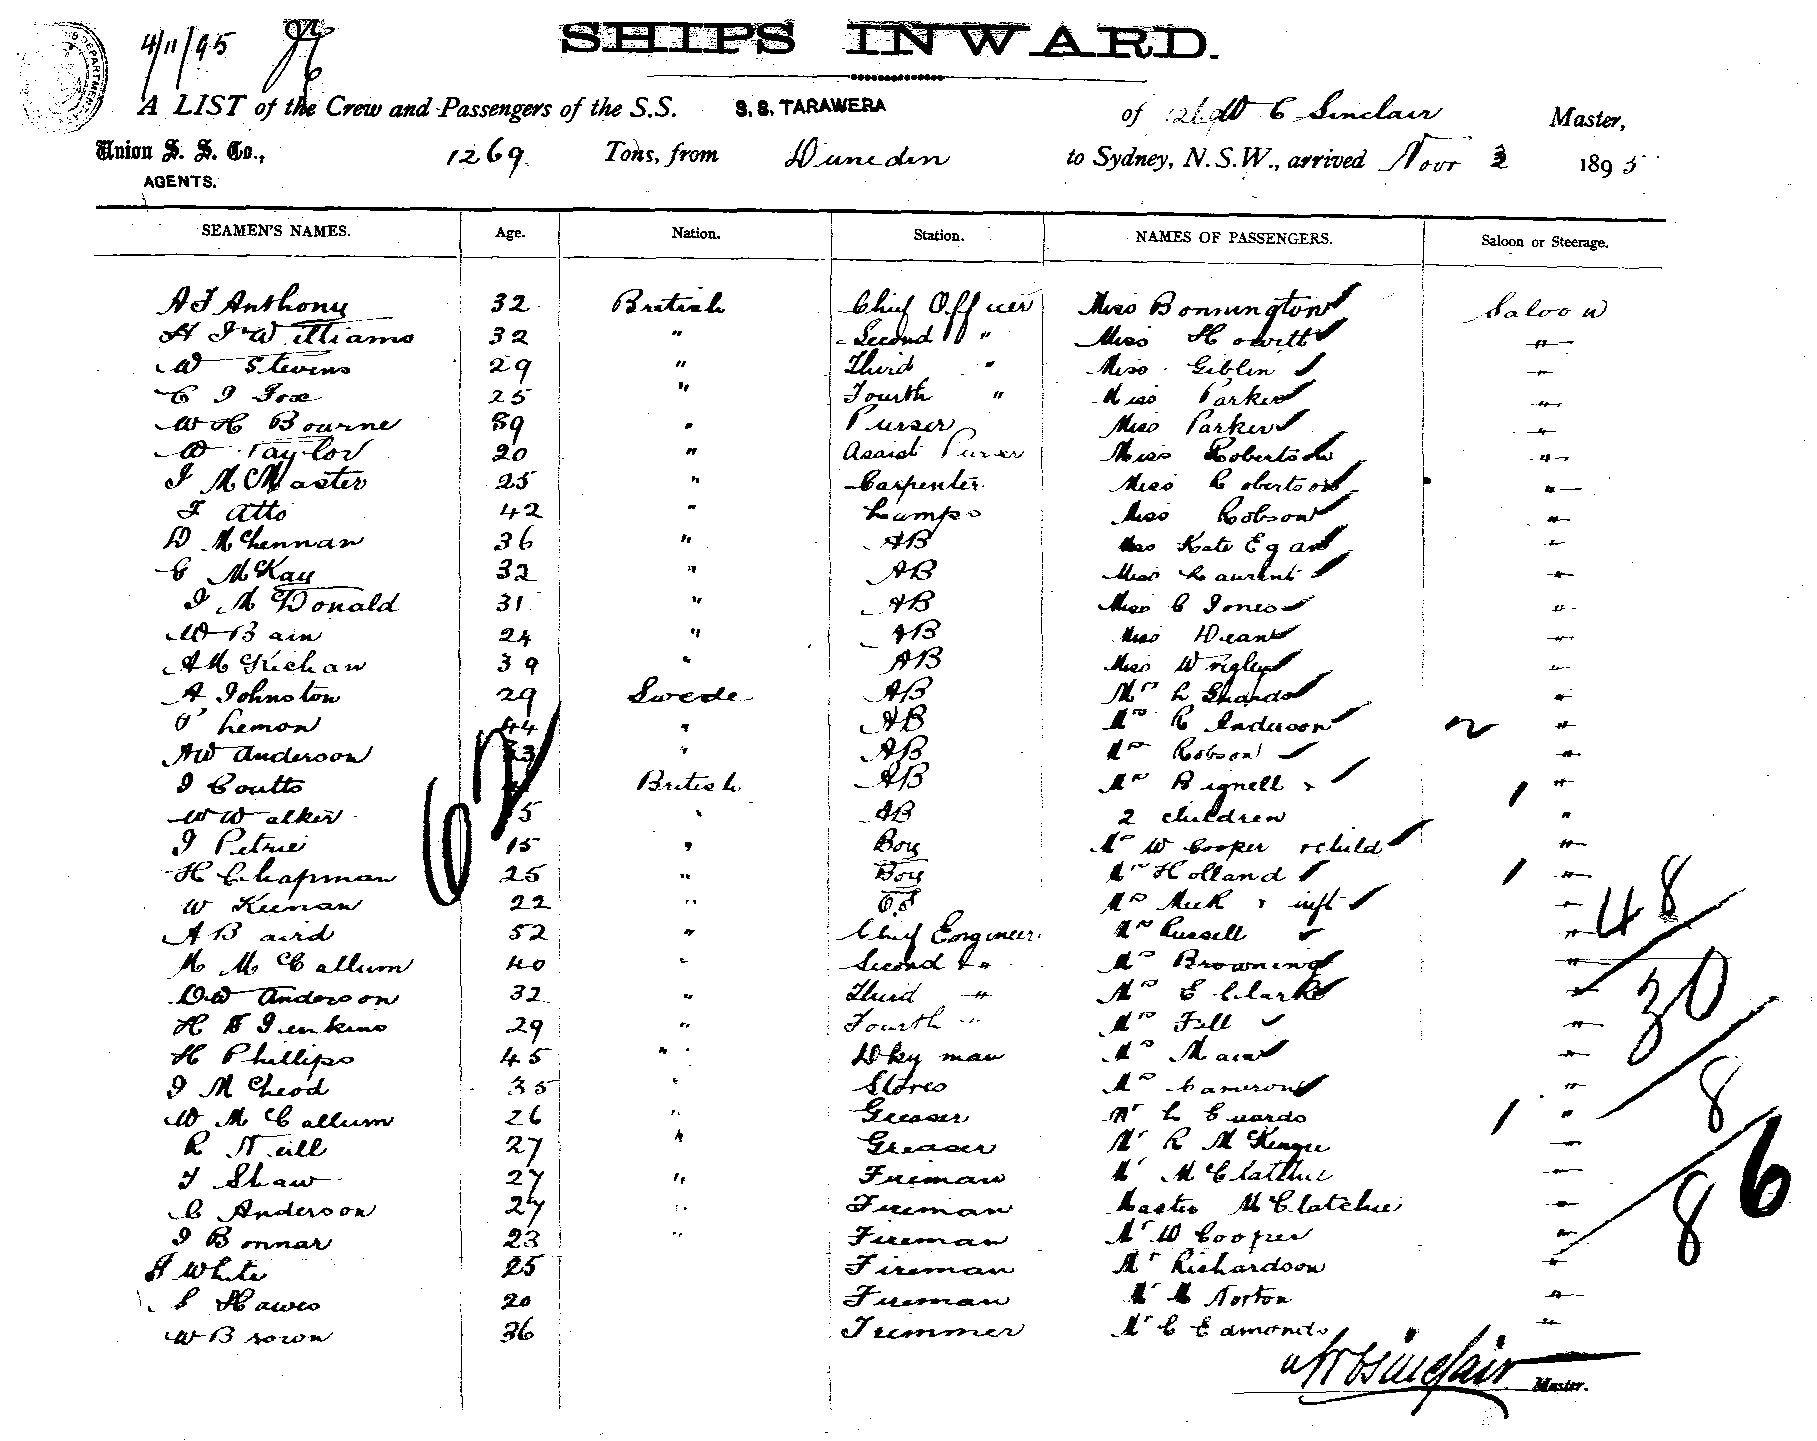 4/11/95
SHIPS INWARD.
A LIST of the Crew and Passengers of the S.S. S.S. TARAWERA of W C Sinclair Master,
Union S. S. Co., 1269 Tons, from Dunedin to Sydney, N.S.W., arrived Novr 3 1895
AGENTS.
SEAMEN'S NAMES. Age. Nation. Station. NAMES OF PASSENGERS. Saloon or Steerage.
A J Anthony 32 British Chief Officer Miss Bonnington Saloon
H J Williams 32 " Second " Miss Howitt "
W Stevens 29 " Third " Miss Giblin "
C J Fox 25 " Fourth " Miss Parker "
W H Bourne 39 " Purser Miss Parker "
W Taylor 20 " Assist Purser Miss Robertson "
J McMaster 25 " Carpenter Miss Robertson "
F Atto 42 " Lamps Miss Robson "
D McLennan 36 " AB Miss Kate Egan "
G McKay 32 " AB Miss Laurent "
J McDonald 31 " AB Miss C Jones "
W Bain 24 " AB Miss Deans "
A McKichan 39 " AB Miss Wrigley "
A Johnston 29 Swede AB Mrs L Edwards "
O Lemon 44 " AB Mrs C Anderson "
AW Anderson 33 " AB Mrs Robson "
J Coutts British AB Mrs Bignell + "
W Walker " AB 2 children "
J Petrie 15 " Boy Mrs W Cooper + child "
H Chapman 25 " Boy Mrs Holland "
W Keenan 22 " OS Mrs Meek + inft "
A Baird 52 " Chief Engineer Mrs Russell "
M McCallum 40 " Second " Mrs Browning "
DW Anderson 32 " Third " Mrs E Clark "
H S Jenkins 29 " Fourth " Mrs Fell "
H Phillips 45 " Dky man Mrs Main "
J McLeod 35 " Stores Mrs Cameron "
W McCallum 26 " Greaser Mr L Edwards "
R Neill 27 " Greaser Mr R McKenzie "
T Shaw 27 " Fireman Mr McClatchie "
C Anderson 27 " Fireman Master McClatchie "
J Bonnar 23 " Fireman Mr W Cooper "
H White 25 Fireman Mr Richardson "
S Hawes 20 Fireman Mr M Norton "
W Brown 36 Trimmer Mr C Edmonds "
48
30
8
86
W C Sinclair
Master.